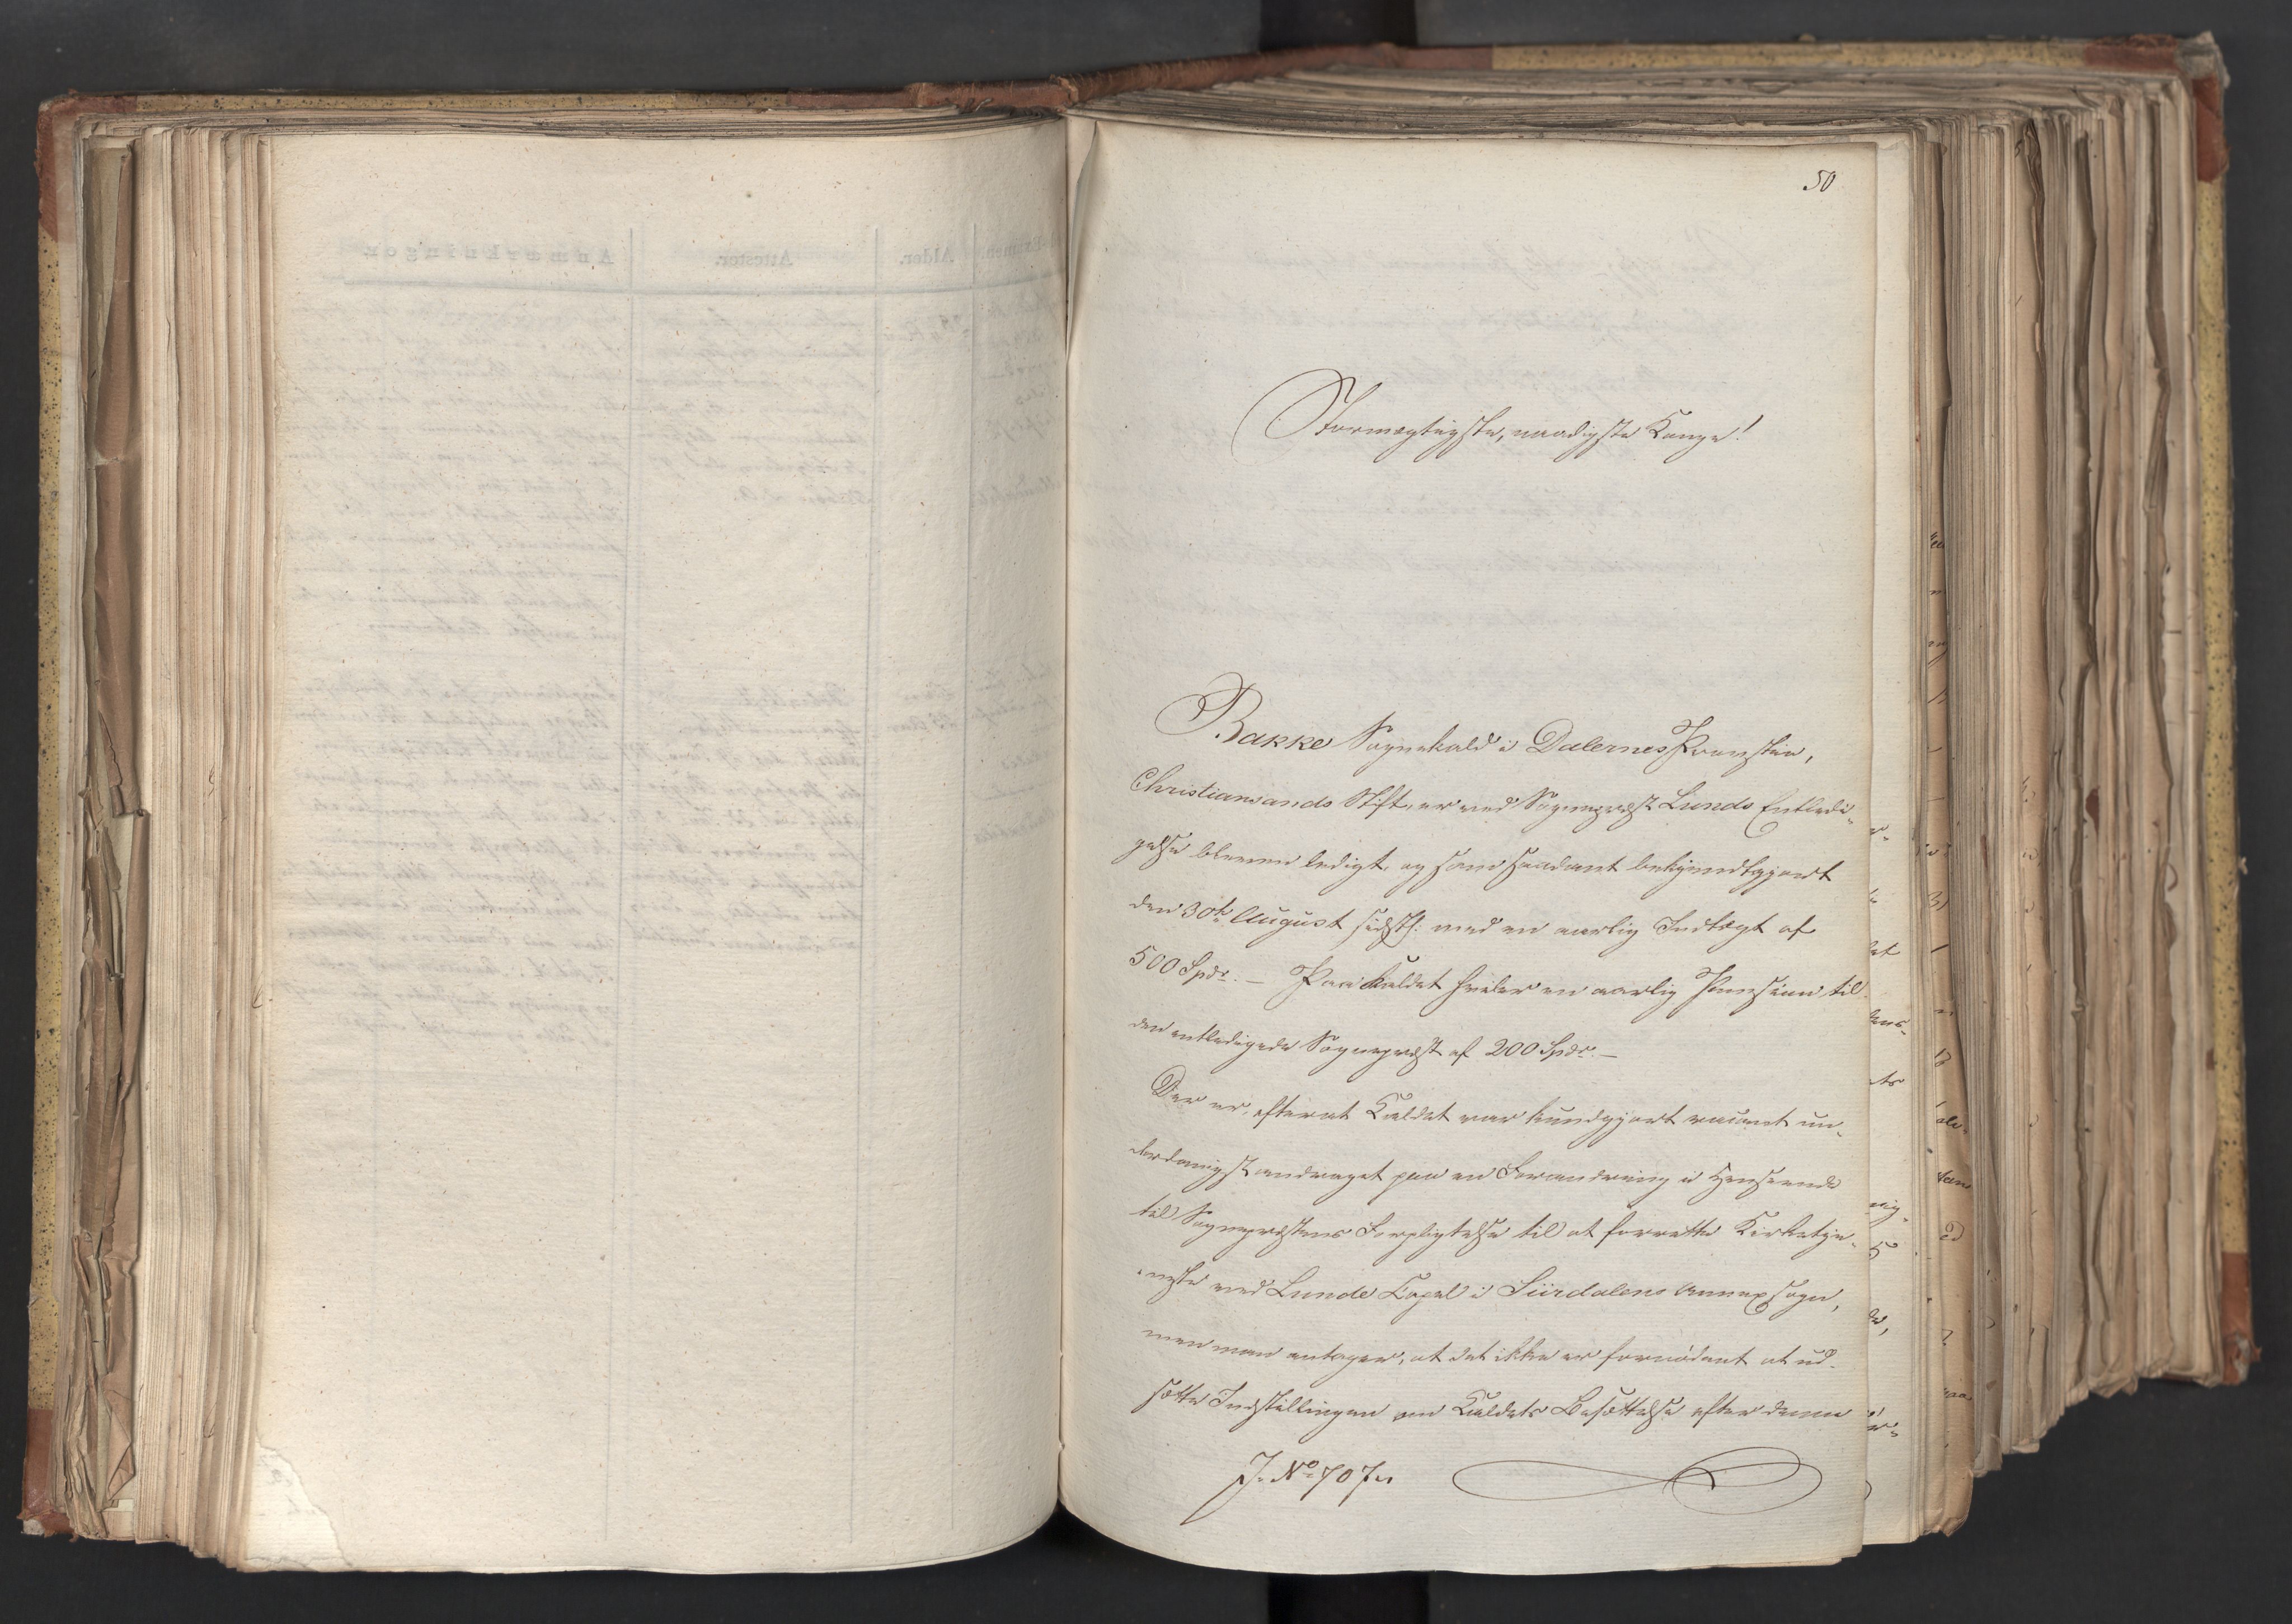 50
Stormægtigste, naadigste Konge!
Bakke Sognekald i Dalernes Provstie,
Christiansands Stift, er ved Sognepræst Lunds Entledi-
gelse bleven ledigt, og som saadant bekjendtgjort
den 30te August sidstl: med en aarlig Indtægt af
500 Spdr. — Paa Kaldet hviler en aarlig Pension til
den entledigede Sognepræst af 200 Spdr. —
Der er, efterat Kaldet var kundgjort vacant un-
derdanigst andraget paa en Forandring i Henseende
til Sognepræstens Forpligtelse til at forrette Kirketje-
neste ved Lunde Capel i Siirdalens Annexsogn,
men man antager, at det ikke er fornødent at ud-
sætte Indstillingen om Kaldets Besættelse efter denne
J. No 707